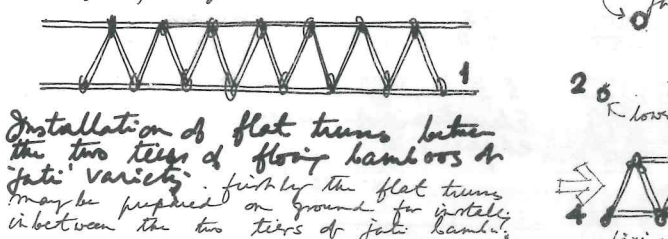 1
Installation of flat truss between
the two tiers of floring bamboos of
'jati' variety. firstly the flat truss
may be prepared on ground for install
inbetween the two tiers of jati bambu.
2
lower
4